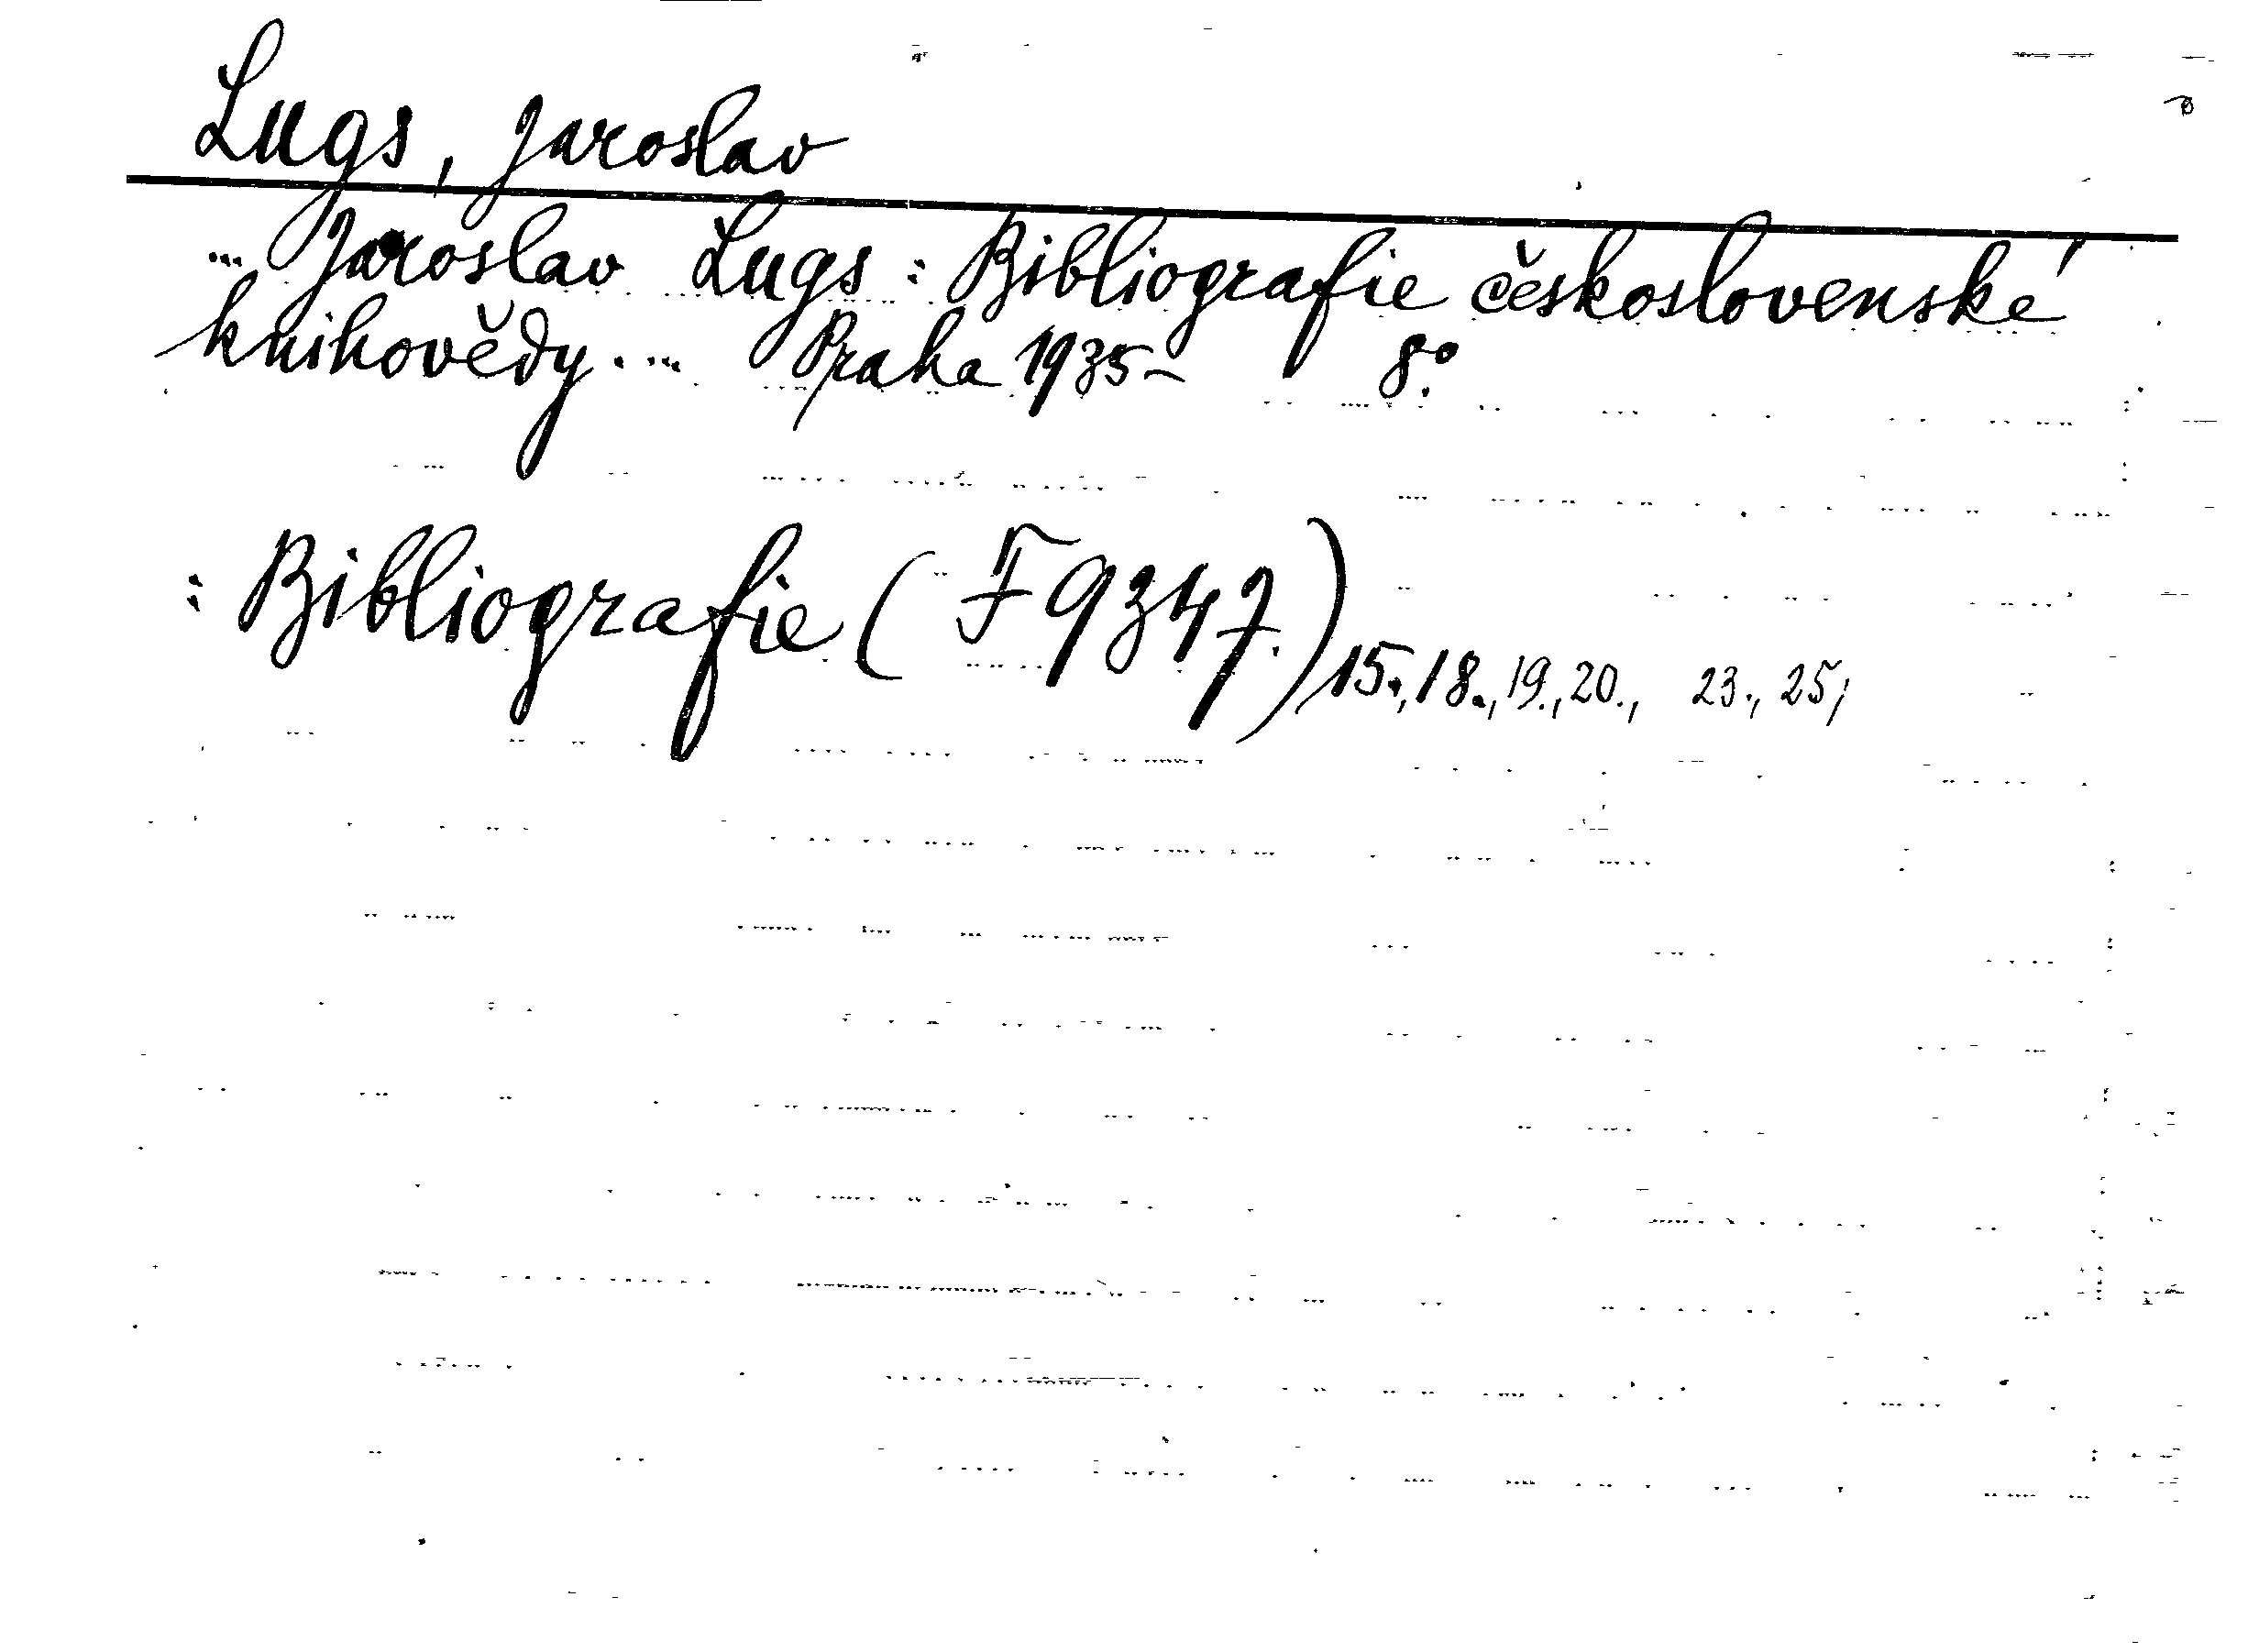 Lugs, Jaroslav
... Jaroslav Lugs : Bibliografie československé
knihovědy.... Praha 1935- 8.°
: Bibliografie ( F 9347.) 15., 18., 19., 20., 23., 25,